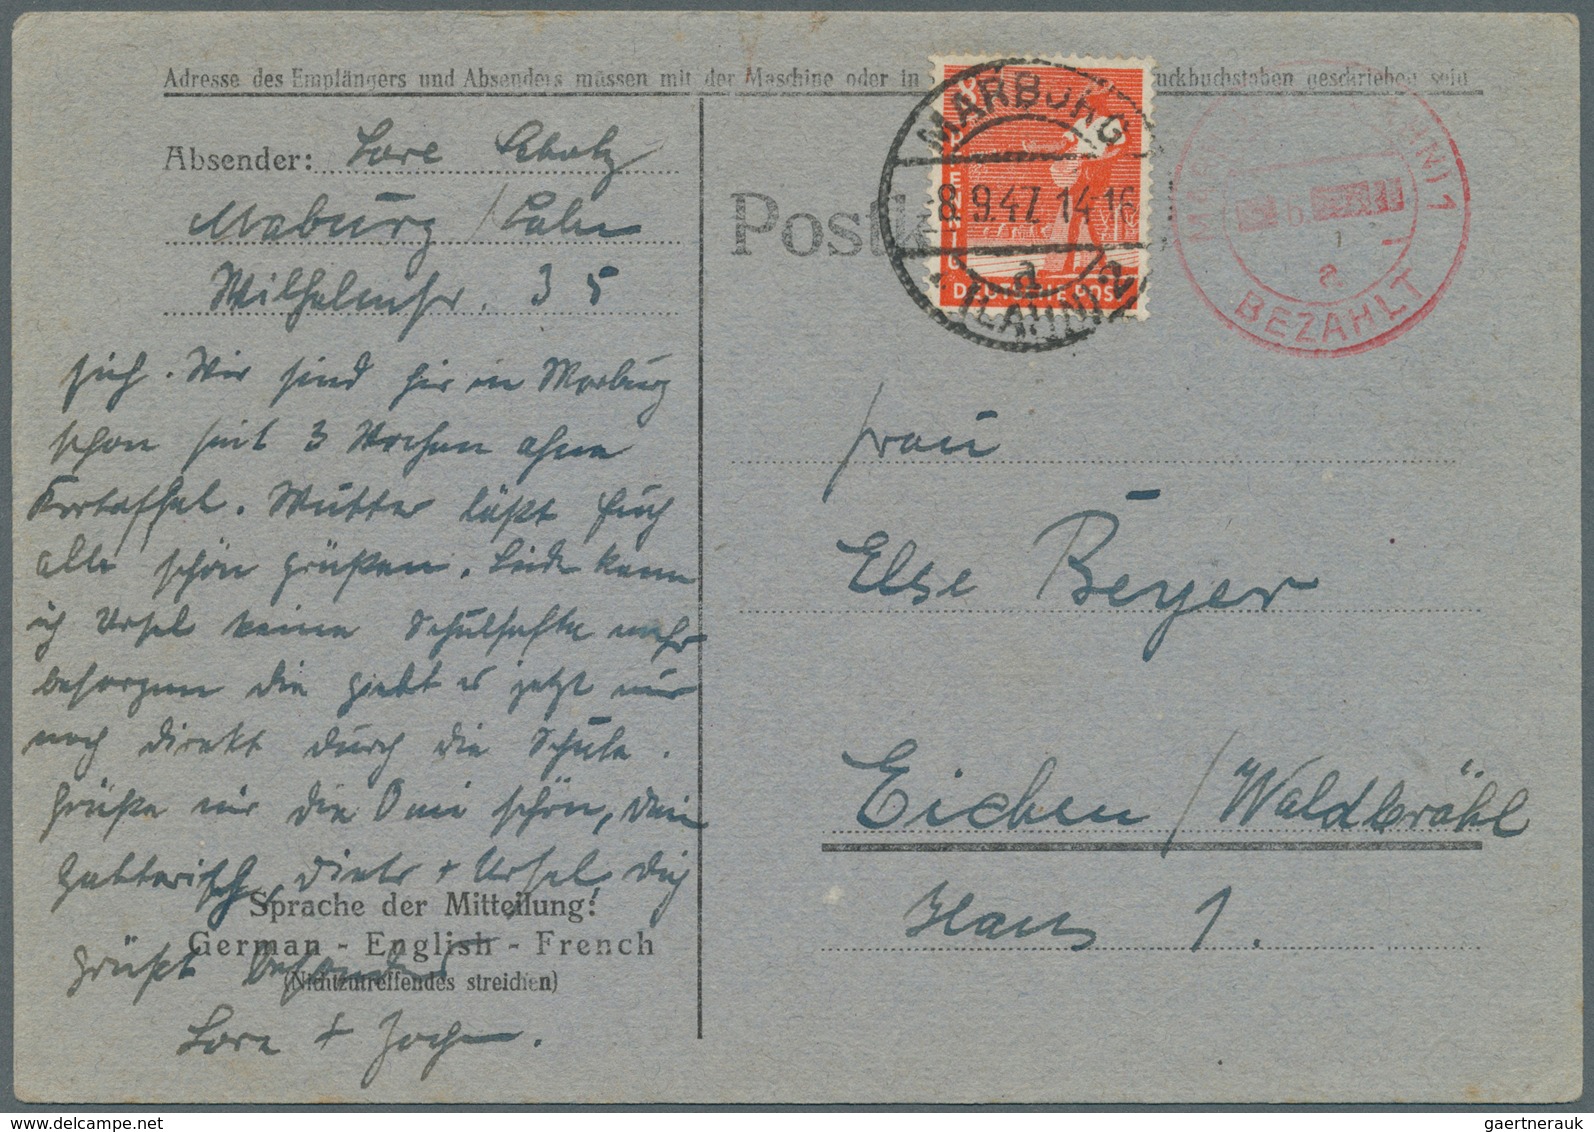 Adresse des Empfängers und Absenders müssen mit der Maschine oder in ruckbuchstaben geschrieben sein
Absender: Lore Scholz
Marburg / Lahn
Wilhelmstr. 35
sich. Wir sind hier in Marburg
schon seit 3 Wochen ohne
Kartoffel. Mutter läßt Euch
alle schön grüßen. Leider kann
ich Ursel keine Schulhefte mehr
besorgen die giebt es jetzt nur
noch direkt durch die Schule.
Grüße mir die Omi schön, Dein
Dieter + Ursel, Dich
grüßt besonders
Lore + Joche.
Sprache der Mitteilung:
German - English - French
(Nichtzutreffendes streichen)
Postk
MARBURG
8.9.47. 14-16
a
(LAHN) 2
DEUTSCHE POST
MARB HN) 1
6.
a
BEZAHLT
Frau
Else Beyer
Eichen / Waldbröhl
Haus 1.
gaertnerauk